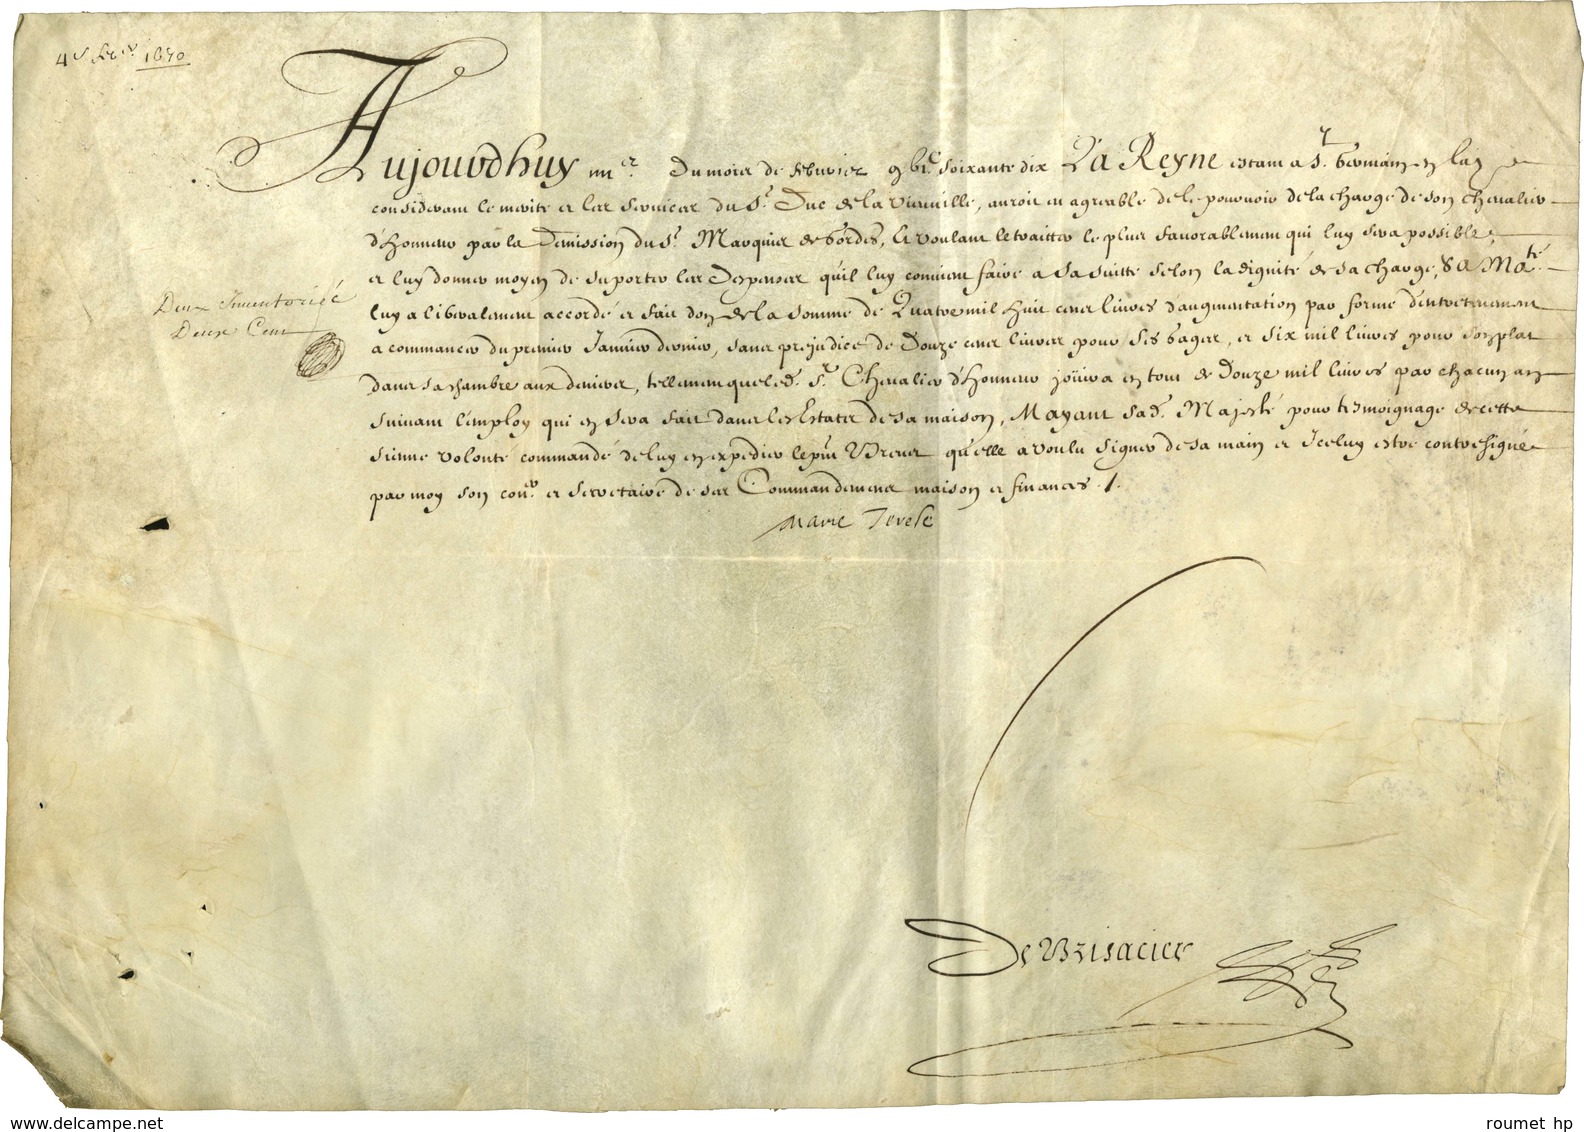 4e fevr. 1670
Aujourdhuy iiiie. Du mois de feburier Soixante dix La Reyne estant a St. Germain en Laye
considerant le merite et les seruices du Sr. Duc de la Vieuville, auroit eu agreable de le pouruoir de la charge de son cheualier
d'Honneur par la Demission du Sr. Marquis des bordes, Et voulant le traitter le plus fauorablement qui luy sera possible,
et luy donner moyen de suporter les despenses qu'il luy conuient faire a sa suitte selon la dignité de sa charge, Sa Maté.
luy a liberalement accordé et fait don de la somme de Quatre mil huit cens liures d'augmentation par forme d'entretenement
Deux Inventorié
Deux Cent
a commancer du premier Januier dernier, sans prejudice de Douze cens liures pour ses pages, et six mil liures pour son plat
dans sa chambre aux deniers, tellement que led. Sr. Cheualier d'Honneur joüira en tout de Douze mil liures par chacun an
suiuant l'employ qui en sera fait dans les Estats de sa maison, M'ayant sad. Majesté pour tesmoignage de cette
sienne volonté commandé de luy en expedier le pnt Breuet qu'elle a voulu signer de sa main et Iceluy estre contresigné
par moy son coner. et secretaire de ses Commandemens maison et finances ./.
Marie Terese
De Brisacier
www.delcampe.net
roumet hp